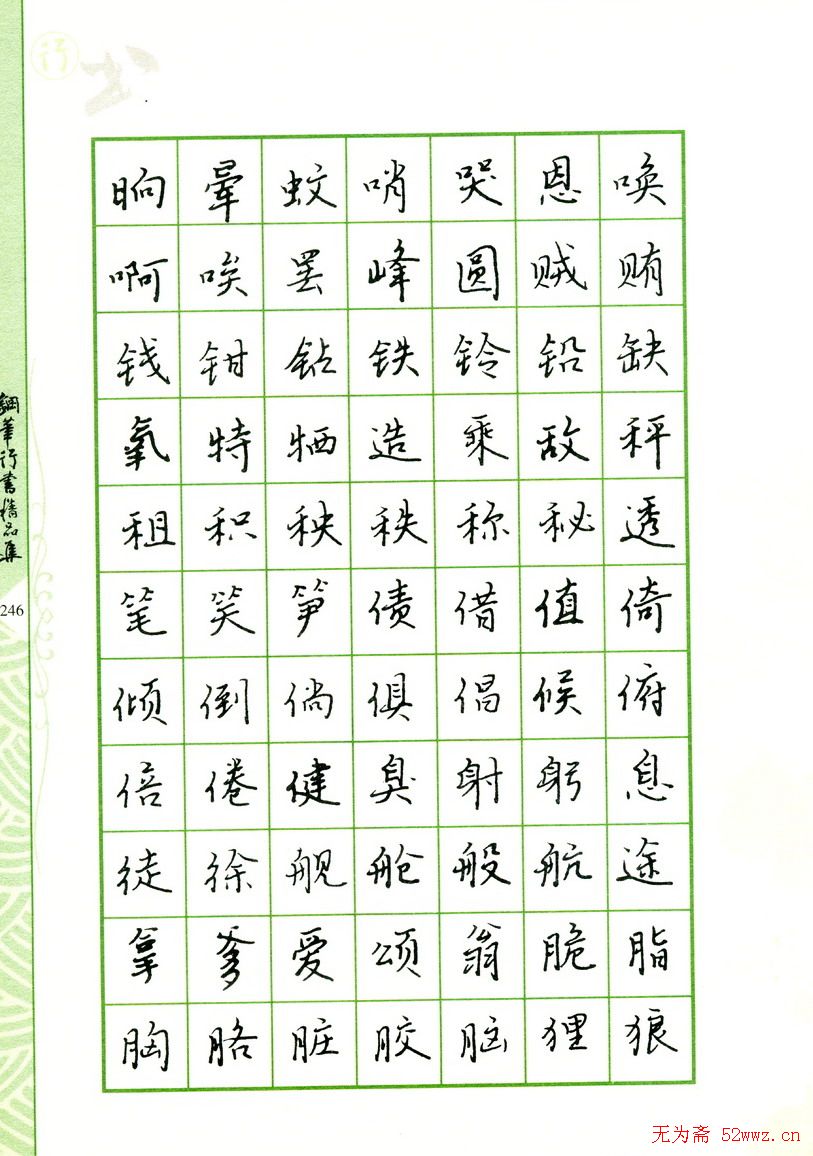 行书
晌 晕 蚊 哨 哭 恩 唤
啊 唉 罢 峰 圆 贼 贿
钱 钳 钻 铁 铃 铅 缺
氧 特 牺 造 乘 敌 秤
租 积 秧 秩 称 秘 透
笔 笑 笋 债 借 值 倚
倾 倒 倘 俱 倡 候 俯
倍 倦 健 臭 射 躬 息
徒 徐 舰 舱 般 航 途
拿 爹 爱 颂 翁 脆 脂
胸 胳 脏 胶 脑 狸 狼
行書精品集
246
无为斋 52wwz.cn